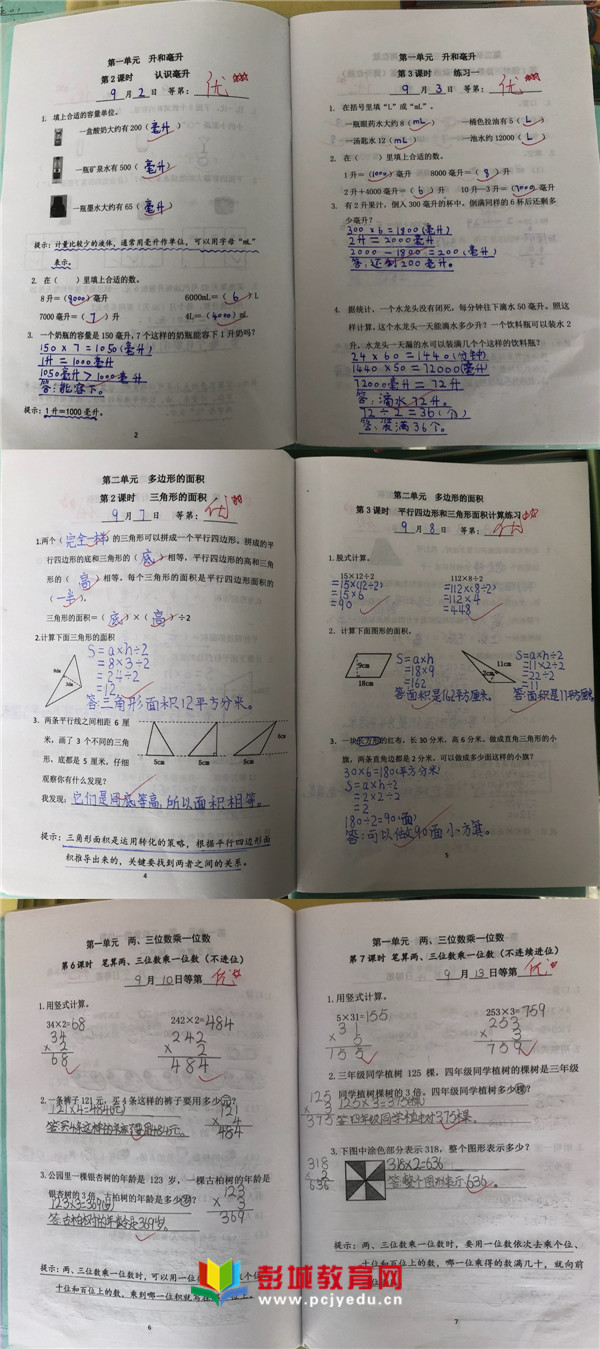 第一单元 升和毫升
第2课时 认识毫升
9月2日 等第：优
1. 填上合适的容量单位。
一盒酸奶大约有200（毫升）
一瓶矿泉水有500（毫升）
一瓶墨水大约有65（毫升）
提示：计量比较少的液体，通常用毫升作单位，可以用字母“mL”
表示。
2. 在（ ）里填上合适的数。
8升=（8000）毫升 6000mL=（6）L
7000毫升=（7）升 4L=（4000）mL
3. 一个奶瓶的容量是150毫升，7个这样的奶瓶能容下1升奶吗？
150×7=1050(毫升)
1升=1000毫升
1050毫升>1000毫升
答：能容下。
提示：1升=1000毫升。
2
第一单元 升和毫升
第3课时 练习一
9月3日 等第：优
1. 在括号里填“L”或“mL”。
一瓶眼药水大约8（mL） 一桶色拉油有5（L）
一汤匙水12（mL） 一池水约12000（L）
2. 在（ ）里填上合适的数。
1升=（1000）毫升 8000毫升=（8）升
2升+4000毫升=（6）升 10升-3升=（7000）毫升
3. 有2升果汁，倒入300毫升的杯中，倒满同样的6杯后还剩多
少毫升？
300×6=1800(毫升)
2升=2000毫升
2000-1800=200(毫升)
答：还剩200毫升。
4. 据统计，一个水龙头没有闭死，每分钟往下滴水50毫升。照这
样计算，这个水龙头一天能滴水多少升？一个饮料瓶可以装水2
升，水龙头一天漏的水可以装满几个这样的饮料瓶？
24×60=1440(分钟)
1440×50=72000(毫升)
72000毫升=72升
答：滴水72升。
72÷2=36(个)
答：装满36个。
3
第二单元 多边形的面积
第2课时 三角形的面积
9月7日 等第：优
1.两个（完全一样）的三角形可以拼成一个平行四边形。拼成的平
行四边形的底和三角形的（底）相等，平行四边形的高和三角
形的（高）相等。每个三角形的面积是平行四边形面积的
（一半）。
三角形的面积=（底）×（高）÷2
2.计算下面三角形的面积
S=a×h÷2
=8×3÷2
=24÷2
=12
答：三角形面积12平方分米。
3. 两条平行线之间相距6厘
米，画了3个不同的三角
形，底都是5厘米，仔细
观察你有什么发现？
5cm 5cm 5cm
我发现：它们是同底等高，所以面积相等。
提示：三角形面积是运用转化的策略，根据平行四边形面
积推导出来的，关键要找到两者之间的关系。
4
第二单元 多边形的面积
第3课时 平行四边形和三角形面积计算练习
9月8日 等第：优
1. 脱式计算。
15×12÷2 112×8÷2
=15×(12÷2) =112×(8÷2)
=15×6 =112×4
=90 =448
2. 计算下面图形的面积。
9cm
18cm
S=a×h
=18×9
=162
答：面积是162平方厘米。
11cm
2cm
S=a×h÷2
=11×2÷2
=22÷2
=11
答：面积是11平方厘米。
3. 一块长方形的红布，长30分米，高6分米。做成直角三角形的小
旗，两条直角边都是2分米，可以做成多少面这样的小旗？
30×6=180(平方分米)
S=a×h÷2
=2×2÷2
=2
180÷2=90(面)
答：可以做90面小方旗。
5
第一单元 两、三位数乘一位数
第6课时 笔算两、三位数乘一位数（不进位）
9月10日等第 优
1.用竖式计算。
34×2=68 242×2=484
34 242
×2 ×2
68 484
2.一条裤子121元，买4条这样的裤子要用多少元？
121×4=484(元)
答：买4条这样的裤子要用484元。
121
×4
484
3.公园里一棵银杏树的年龄是123岁，一棵古柏树的年龄是
银杏树的3倍，古柏树的年龄是多少岁？
123×3=369(岁)
答：古柏树的年龄是369岁。
123
×3
369
提示：两、三位数乘一位数时，可以用一位
十位和百位上的数，乘到哪一位积就写在
6
第一单元 两、三位数乘一位数
第7课时 笔算两、三位数乘一位数（不连续进位）
9月13日等第 优
1.用竖式计算。
5×31=155 253×3=759
31 253
×5 ×3
155 759
2.三年级同学植树125棵，四年级同学植树的棵树是三年级
同学植树棵树的3倍。四年级同学植树多少棵？
125
×3
375
125×3=375(棵)
答：四年级同学植树375棵。
3.下图中涂色部分表示318，整个图形表示多少？
318
×2
636
318×2=636
答：整个图形表示636。
提示：两、三位数乘一位数时，要用一位数依次去乘个位、
十位和百位上的数，哪一位乘得的数满几十，就向前
7
彭城教育网
www.pcjyedu.cn